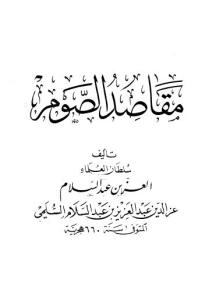 مقاصد الصوم
تأليف
سلطان العلماء
العز بن عبد السلام
عز الدين عبد العزيز بن عبد السلام السلمي
المتوفى سنة ٦٦٠ هجرية